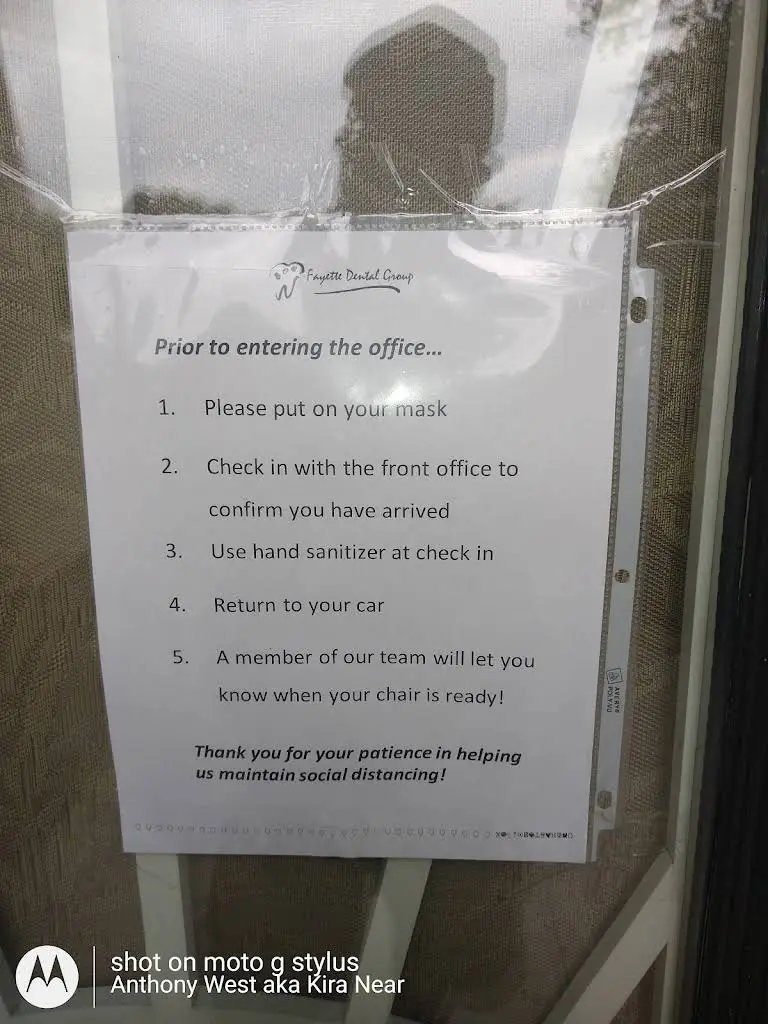 Fayette Dental Group
Prior to entering the office...
1. Please put on your mask
2. Check in with the front office to
confirm you have arrived
3. Use hand sanitizer at check in
4. Return to your car
5. A member of our team will let you
know when your chair is ready!
Thank you for your patience in helping
us maintain social distancing!
AVERY®
shot on moto g stylus
Anthony West aka Kira Near